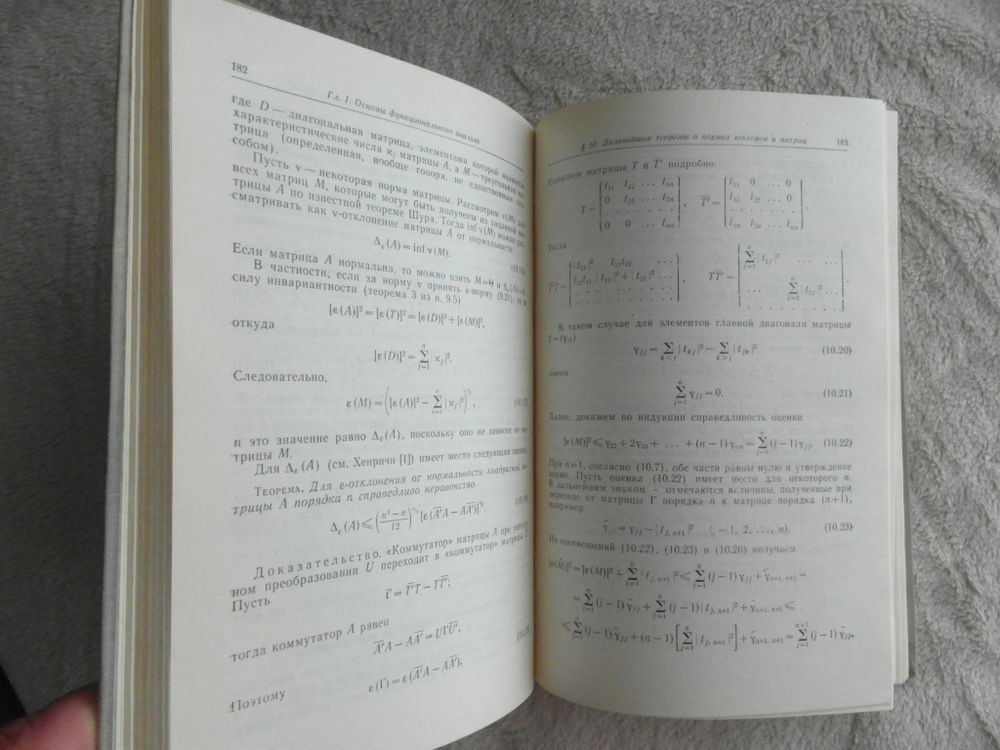 182
Гл. I. Основы функционального анализа
где D — диагональная матрица, элементами которой являются
характеристические числа ϰⱼ матрицы A, а M — треугольная ма-
трица (определенная, вообще говоря, не единственным спо-
собом).
Пусть ν — некоторая норма матрицы. Рассмотрим ν(M) для
всех матриц M, которые могут быть получены из заданной ма-
трицы A по известной теореме Шура. Тогда inf ν(M) можно рас-
сматривать как ν-отклонение матрицы A от нормальности:
Δᵥ(A) = inf ν(M).
Если матрица A нормальна, то можно взять M = Θ и
В частности, если за норму ν принять ε-норму (9.21), то в
силу инвариантности (теорема 3 из п. 9.5)
[ε(A)]² = [ε(T)]² = [ε(D)]² + [ε(M)]²,
откуда
[ε(D)]² = ∑ⱼ₌₁ⁿ |ϰⱼ|².
Следовательно,
ε(M) = ([ε(A)]² − ∑ⱼ₌₁ⁿ |ϰⱼ|²)^½,
и это значение равно Δ_ε(A), поскольку оно не зависит от ма-
трицы M.
Для Δ_ε(A) (см. Хенричи [1]) имеет место следующая оценка.
Теорема. Для ε-отклонения от нормальности квадратной ма-
трицы A порядка n справедливо неравенство
Δ_ε(A) ≤ ((n³ − n)/12)^¼ [ε(A̅′A − AA̅′)]^½.
Доказательство. «Коммутатор» матрицы A при унитар-
ном преобразовании U переходит в «коммутатор» матрицы T.
Пусть
Γ = T̅′T − TT̅′;
тогда коммутатор A равен
A̅′A − AA̅′ = UΓU̅′,
Поэтому
ε(Γ) = ε(A̅′A − AA̅′).
§ 10. Дальнейшие теоремы о нормах векторов и матриц
183
Напишем матрицы T и T̅′ подробно:
T = [t₁₁ t₁₂ … t₁ₙ; 0 t₂₂ … t₂ₙ; . . . . . .; 0 0 … tₙₙ], T̅′ = [t̅₁₁ 0 … 0; t̅₁₂ t̅₂₂ … 0; . . . . . .; t̅₁ₙ t̅₂ₙ … t̅ₙₙ].
Тогда
T̅′T = [|t₁₁|² t̅₁₁t₁₂ …; t̅₁₂t₁₁ |t₁₂|² + |t₂₂|² …; . . . . . .], TT̅′ = [∑ⱼ₌₁ⁿ |t₁ⱼ|² … …; … ∑ⱼ₌₂ⁿ |t₂ⱼ|² …; . . . . . .].
В таком случае для элементов главной диагонали матрицы
Γ = (γⱼₗ)
γⱼⱼ = ∑ₖ≤ⱼ |tₖⱼ|² − ∑ₖ≥ⱼ |tⱼₖ|² (10.20)
имеем
∑ⱼ₌₁ⁿ γⱼⱼ = 0. (10.21)
Далее, докажем по индукции справедливость оценки
[ε(M)]² ≤ γ₂₂ + 2γ₃₃ + … + (n − 1) γₙₙ = ∑ⱼ₌₁ⁿ (j − 1) γⱼⱼ. (10.22)
При n = 1, согласно (10.7), обе части равны нулю и утверждение
верно. Пусть оценка (10.22) имеет место для некоторого n.
В дальнейшем знаком ~ отмечаются величины, полученные при
переходе от матрицы Γ порядка n к матрице порядка (n + 1),
например
γ̃ⱼⱼ = γⱼⱼ − |tⱼ,ₙ₊₁|² (j = 1, 2, …, n). (10.23)
Из соотношений (10.22), (10.23) и (10.20) получаем
[ε(M̃)]² = [ε(M)]² + ∑ⱼ₌₁ⁿ |tⱼ,ₙ₊₁|² ≤ ∑ⱼ₌₁ⁿ (j − 1) γⱼⱼ + γ̃ₙ₊₁,ₙ₊₁ =
= ∑ⱼ₌₁ⁿ (j − 1) γ̃ⱼⱼ + ∑ⱼ₌₁ⁿ (j − 1) |tⱼ,ₙ₊₁|² + γ̃ₙ₊₁,ₙ₊₁ ≤
≤ ∑ⱼ₌₁ⁿ (j − 1) γ̃ⱼⱼ + (n − 1) [∑ⱼ₌₁ⁿ |tⱼ,ₙ₊₁|²] + γ̃ₙ₊₁,ₙ₊₁ = ∑ⱼ₌₁ⁿ⁺¹ (j − 1) γ̃ⱼⱼ,